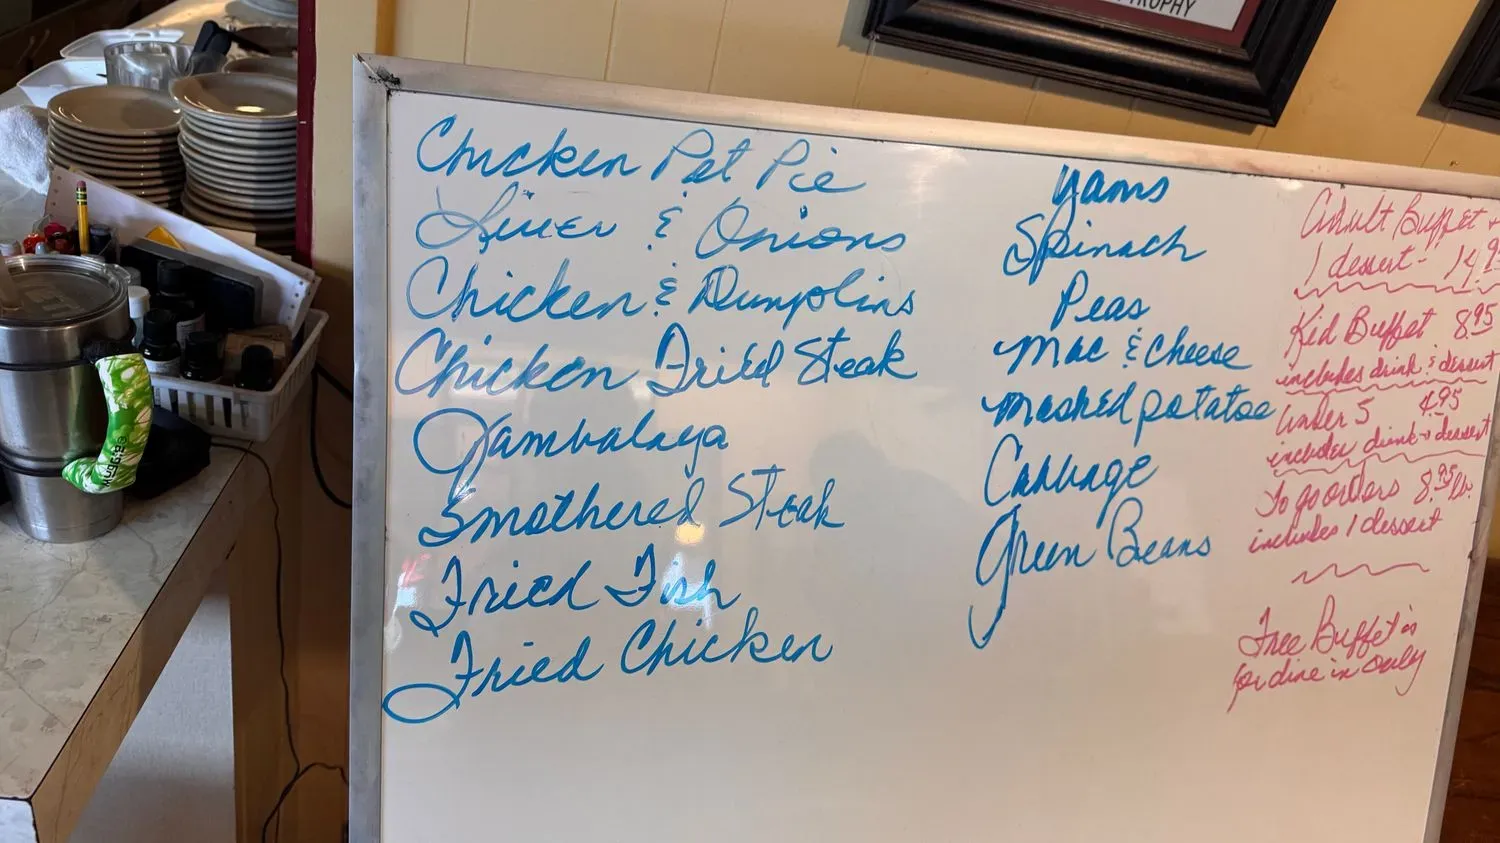 TROPHY
Chicken Pot Pie
Liver & Onions
Chicken & Dumplins
Chicken Fried Steak
Jambalaya
Smothered Steak
Fried Fish
Fried Chicken
Yams
Spinach
Peas
Mac & Cheese
Mashed potatoe
Cabbage
Green Beans
Adult Buffet +
1 dessert - 14.9
Kid Buffet 8.95
includes drink & dessert
Under 5 4.95
includes drink + dessert
To go orders 8.95 lb.
includes 1 dessert
Free Buffet is
for dine in only